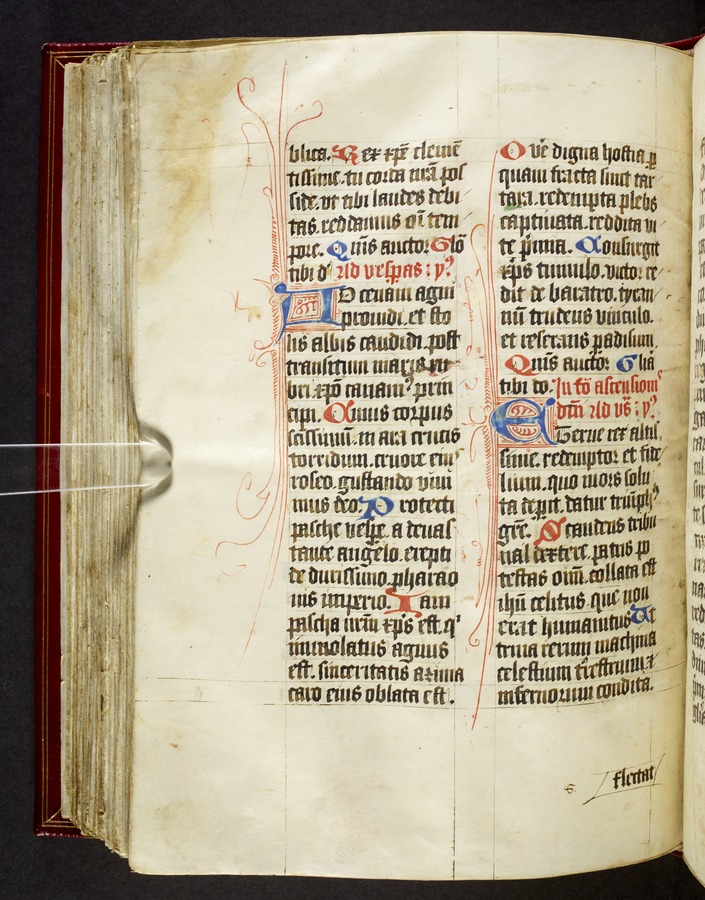 blica. Rex xp̄e clemē
tissime. tu corda nr̄a pos
side. vt tibi laudes debi
tas. reddamus oī tem
pore. Quīs auctor. Glō
tibi d' Ad vesp̄as : y'.
AD cenam agni
prouidi. et sto
lis albis candidi. post
transitum maris ru
bri. xp̄o canam' prin
cipi. Cuius corpus
scissimū. in ara crucis
torridum. cruore eius
roseo. gustando viui
mus deo. Protecti
pasche vesp̄e. a deuas
tante angelo. erepti
de durissimo. pharao
nis imperio. Iam
pascha nr̄m xp̄s est. q'
immolatus agnus
est. sinceritatis azima
caro eius oblata est.
O vē digna hostia. p̄
quam fracta sunt tar
tara. redempta plebs
captiuata. reddita vi
te p̄mia. Consurgit
xp̄s tumulo. victor re
dit de baratro. tyran
nū trudens vinculo.
et reserans padisum.
Quīs auctor. Glīa
tibi do. In fō ascensiom̄
dn̄i Ad vs̄ : y'.
Eterne rex altis
sime. redemptor et fide
lium. quo mors solu
ta dep̄it. datur triūph'
grē. Scandens tribu
nal dextere. patris po
testas oīm. collata est
ihū celitus. que non
erat humanitus. Ut
trina rerum machina
celestium trēstrium. z
infernorum condita.
flectat